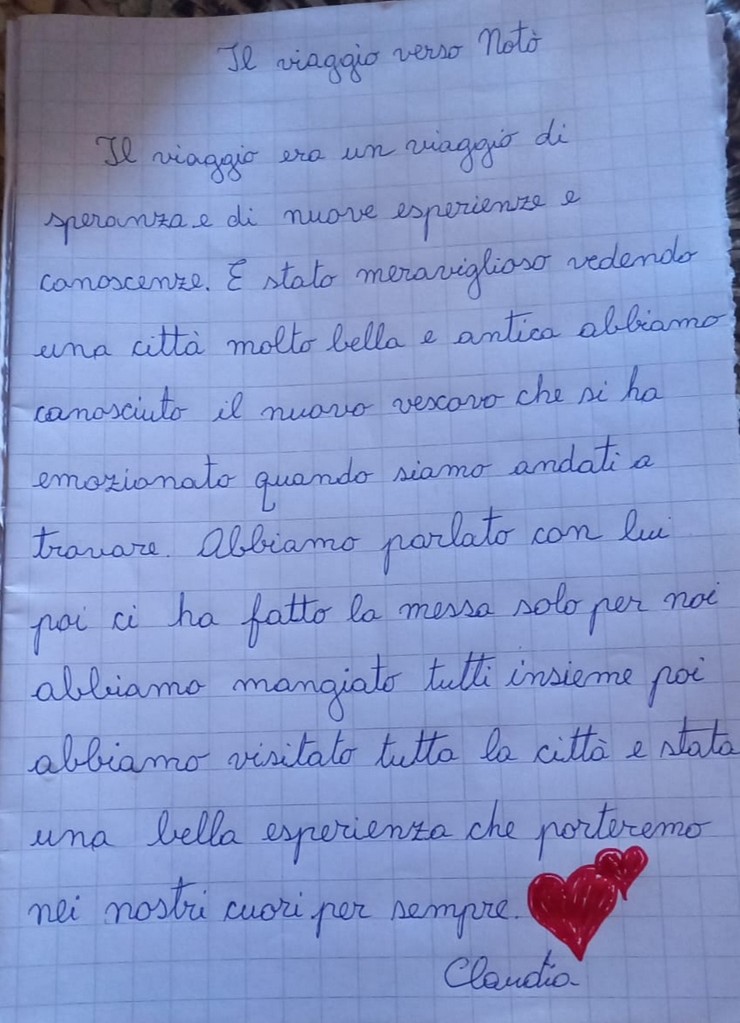 Il viaggio verso Noto
Il viaggio era un viaggio di
speranza e di nuove esperienze e
conoscenze. E stato meraviglioso vedendo
una città molto bella e antica abbiamo
conosciuto il nuovo vescovo che si ha
emozionato quando siamo andati a
trovare. Abbiamo parlato con lui
poi ci ha fatto la messa solo per noi
abbiamo mangiato tutti insieme poi
abbiamo visitato tutta la città e stata
una bella esperienza che porteremo
nei nostri cuori per sempre.
Claudia